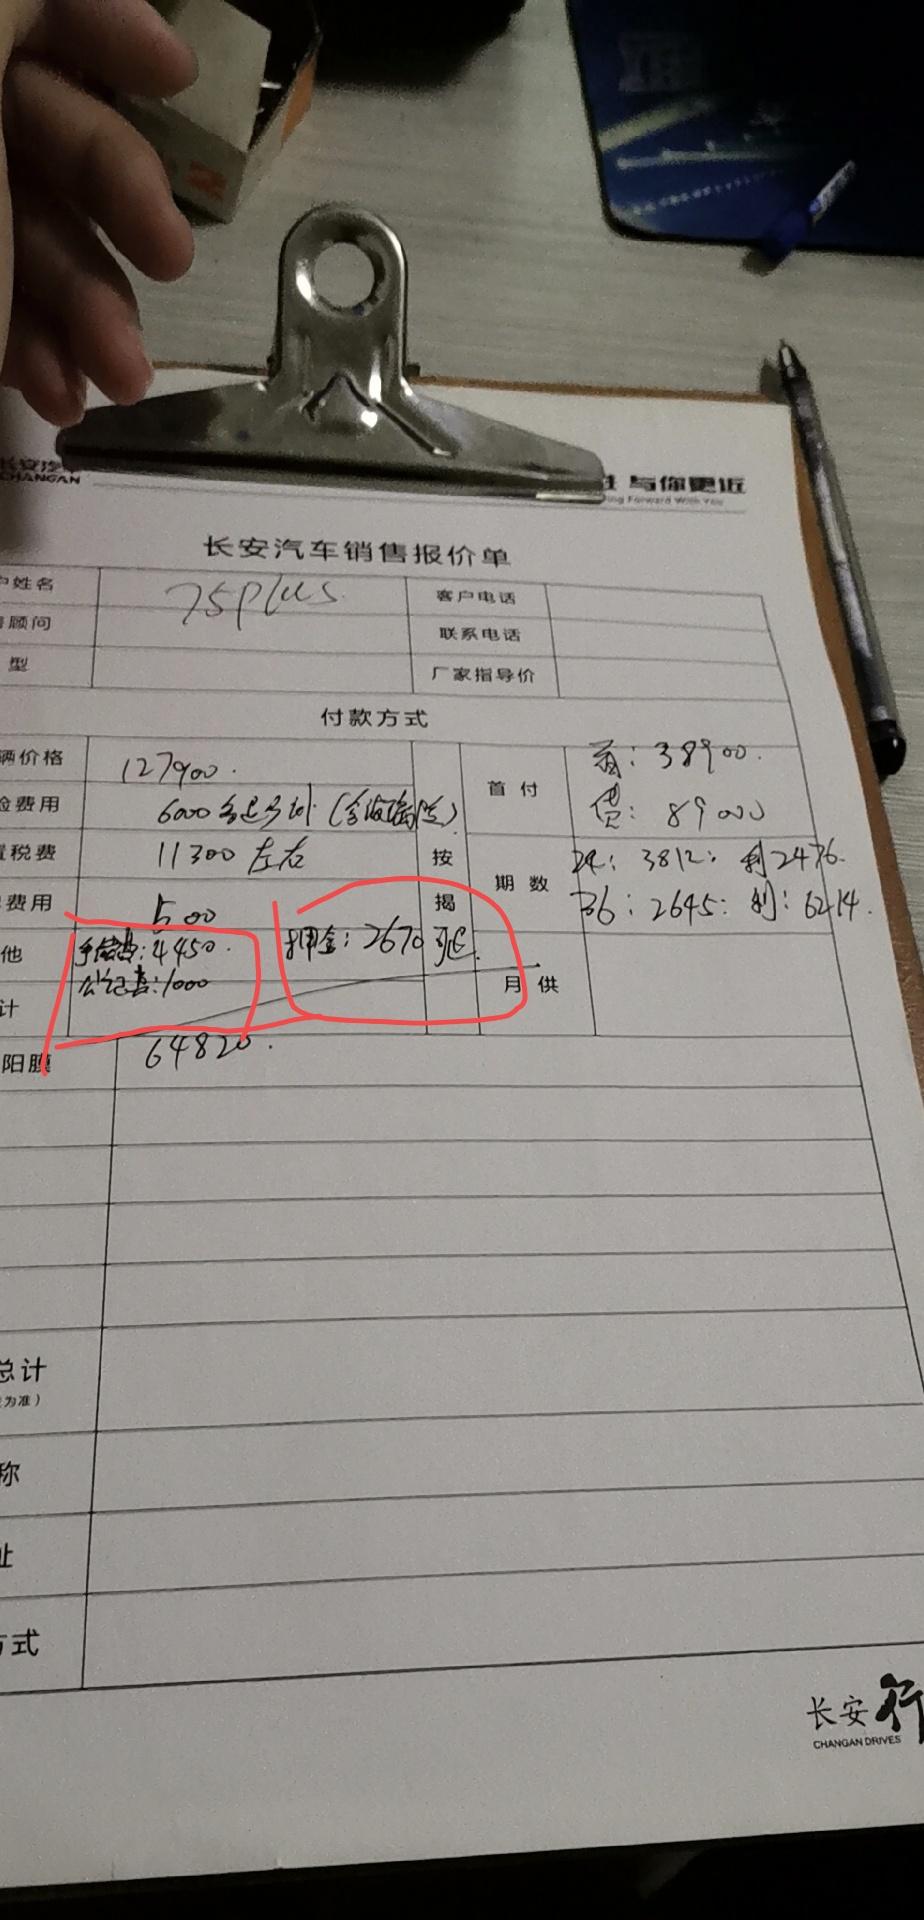 长安汽车
CHANGAN
与你更近
ing Forward With You
长安汽车销售报价单
户姓名 75plus 客户电话
顾问 联系电话
型 厂家指导价
付款方式
辆价格 127900. 首付 首: 38900.
险费用 6000多退少补 (含玻璃险) 贷: 89000
置税费 11300左右 按揭 期数 24: 3812: 利2476.
费用 500 36: 2645: 利: 6214.
他 手续费: 4450. 押金: 2670 可退.
公证费: 1000
计 月供
阳膜 64820.
总计
为准)
称
址
方式
长安行
CHANGAN DRIVES